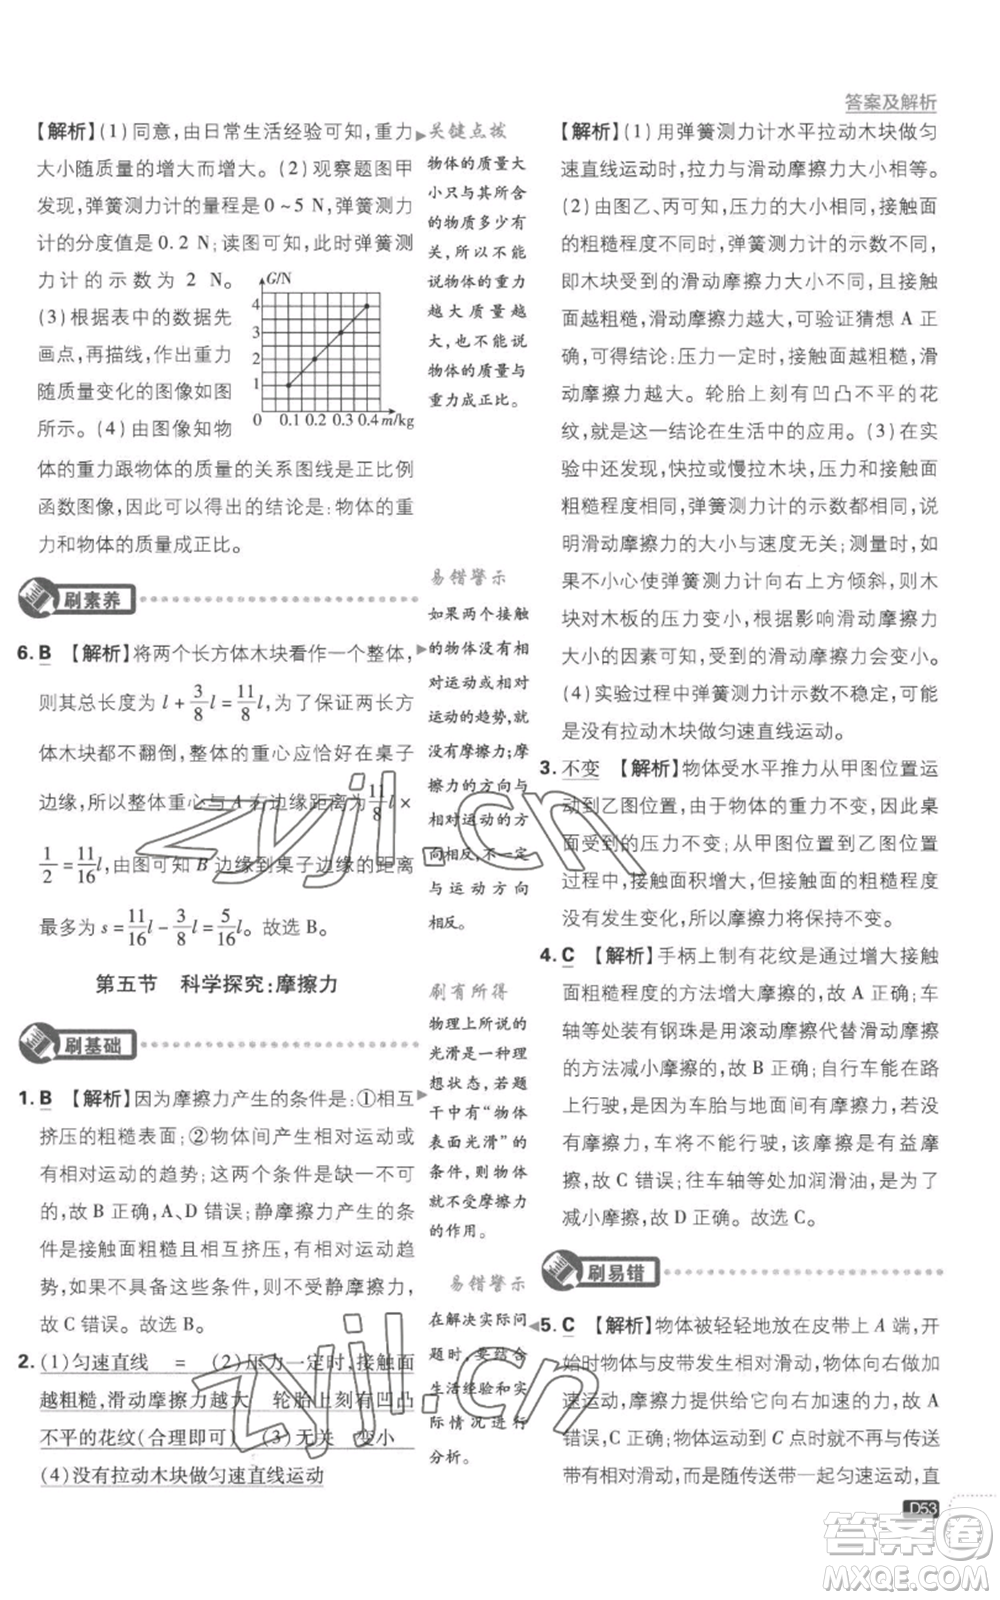 答案及解析
【解析】(1)同意,由日常生活经验可知,重力
大小随质量的增大而增大。(2)观察题图甲
发现,弹簧测力计的量程是 0~5 N,弹簧测力
计的分度值是 0.2 N;读图可知,此时弹簧测
力计的示数为 2 N。
(3)根据表中的数据先
画点,再描线,作出重力
随质量变化的图像如图
所示。(4)由图像知物
G/N
4
3
2
1
0 0.1 0.2 0.3 0.4 m/kg
体的重力跟物体的质量的关系图线是正比例
函数图像,因此可以得出的结论是:物体的重
力和物体的质量成正比。
刷素养
6. B 【解析】将两个长方体木块看作一个整体,
则其总长度为 l + 3/8 l = 11/8 l,为了保证两长方
体木块都不翻倒,整体的重心应恰好在桌子
边缘,所以整体重心与 A 右边缘距离为 11/8 l ×
1/2 = 11/16 l,由图可知 B 边缘到桌子边缘的距离
最多为 s = 11/16 l - 3/8 l = 5/16 l。故选 B。
第五节 科学探究:摩擦力
刷基础
1. B 【解析】因为摩擦力产生的条件是:①相互
挤压的粗糙表面;②物体间产生相对运动或
有相对运动的趋势;这两个条件是缺一不可
的,故 B 正确,A、D 错误;静摩擦力产生的条
件是接触面粗糙且相互挤压,有相对运动趋
势,如果具备这些条件,会产生静摩擦力,
故 C 错误。故选 B。
2. (1)匀速直线 = (2)压力一定时,接触面
越粗糙,滑动摩擦力越大 轮胎上刻有凹凸
不平的花纹(合理即可) (3)无关 变小
(4)没有拉动木块做匀速直线运动
关键点拨
物体的质量大
小只与其所含
的物质多少有
关,所以不能
说物体的重力
越大质量越
大,也不能说
物体的质量与
重力成正比。
易错警示
如果两个接触
的物体没有相
对运动或相对
运动的趋势,就
没有摩擦力;摩
擦力的方向与
相对运动的方
向相反,不一定
与运动方向
相反。
刷有所得
物理上所说的
光滑是一种理
想状态,若题
干中有“物体
表面光滑”的
条件,则物体
就不受摩擦力
的作用。
易错警示
在解决实际问
题时,要结合
生活经验和实
际情况进行
分析。
【解析】(1)用弹簧测力计水平拉动木块做匀
速直线运动时,拉力与滑动摩擦力大小相等。
(2)由图乙、丙可知,压力的大小相同,接触面
的粗糙程度不同时,弹簧测力计的示数不同,
即木块受到的滑动摩擦力大小不同,且接触
面越粗糙,滑动摩擦力越大,可验证猜想 A 正
确,可得结论:压力一定时,接触面越粗糙,滑
动摩擦力越大。轮胎上刻有凹凸不平的花
纹,就是这一结论在生活中的应用。(3)在实
验中还发现,快拉或慢拉木块,压力和接触面
粗糙程度不变时,弹簧测力计的示数不变,说
明滑动摩擦力的大小与速度无关;测量时,如
果不小心使弹簧测力计向右下方倾斜,则木
块对木板的压力变小,根据影响滑动摩擦力
大小的因素可知,受到的滑动摩擦力会变小。
(4)实验过程中弹簧测力计示数不稳定,可能
是没有拉动木块做匀速直线运动。
3. 不变 【解析】物体受水平推力从甲图位置运
动到乙图位置,由于物体的重力不变,因此桌
面受到的压力不变;从甲图位置到乙图位置
过程中,接触面积增大,但接触面的粗糙程度
没有发生变化,所以摩擦力将保持不变。
4. C 【解析】手柄上制有花纹是通过增大接触
面粗糙程度的方法增大摩擦的,故 A 正确;车
轴等处装有钢珠是用滚动摩擦代替滑动摩擦
的方法减小摩擦的,故 B 正确;自行车能在路
上行驶,是因为车胎与地面间有摩擦力,若没
有摩擦力,车将不能行驶,该摩擦是有益摩
擦,故 C 错误;往车轴等处加润滑油,是为了
减小摩擦,故 D 正确。故选 C。
刷易错
5. C 【解析】物体被轻轻地放在皮带上 A 端,开
始时物体与皮带发生相对滑动,物体向右做
加速运动,摩擦力提供给它向右加速的力,故 A
错误,C 正确;物体运动到 C 点时就不再与传送
带有相对滑动,而是随传送带一起匀速运动,直
D53
zyjl.cn
zyjl.cn
答案卷
MXQE.COM